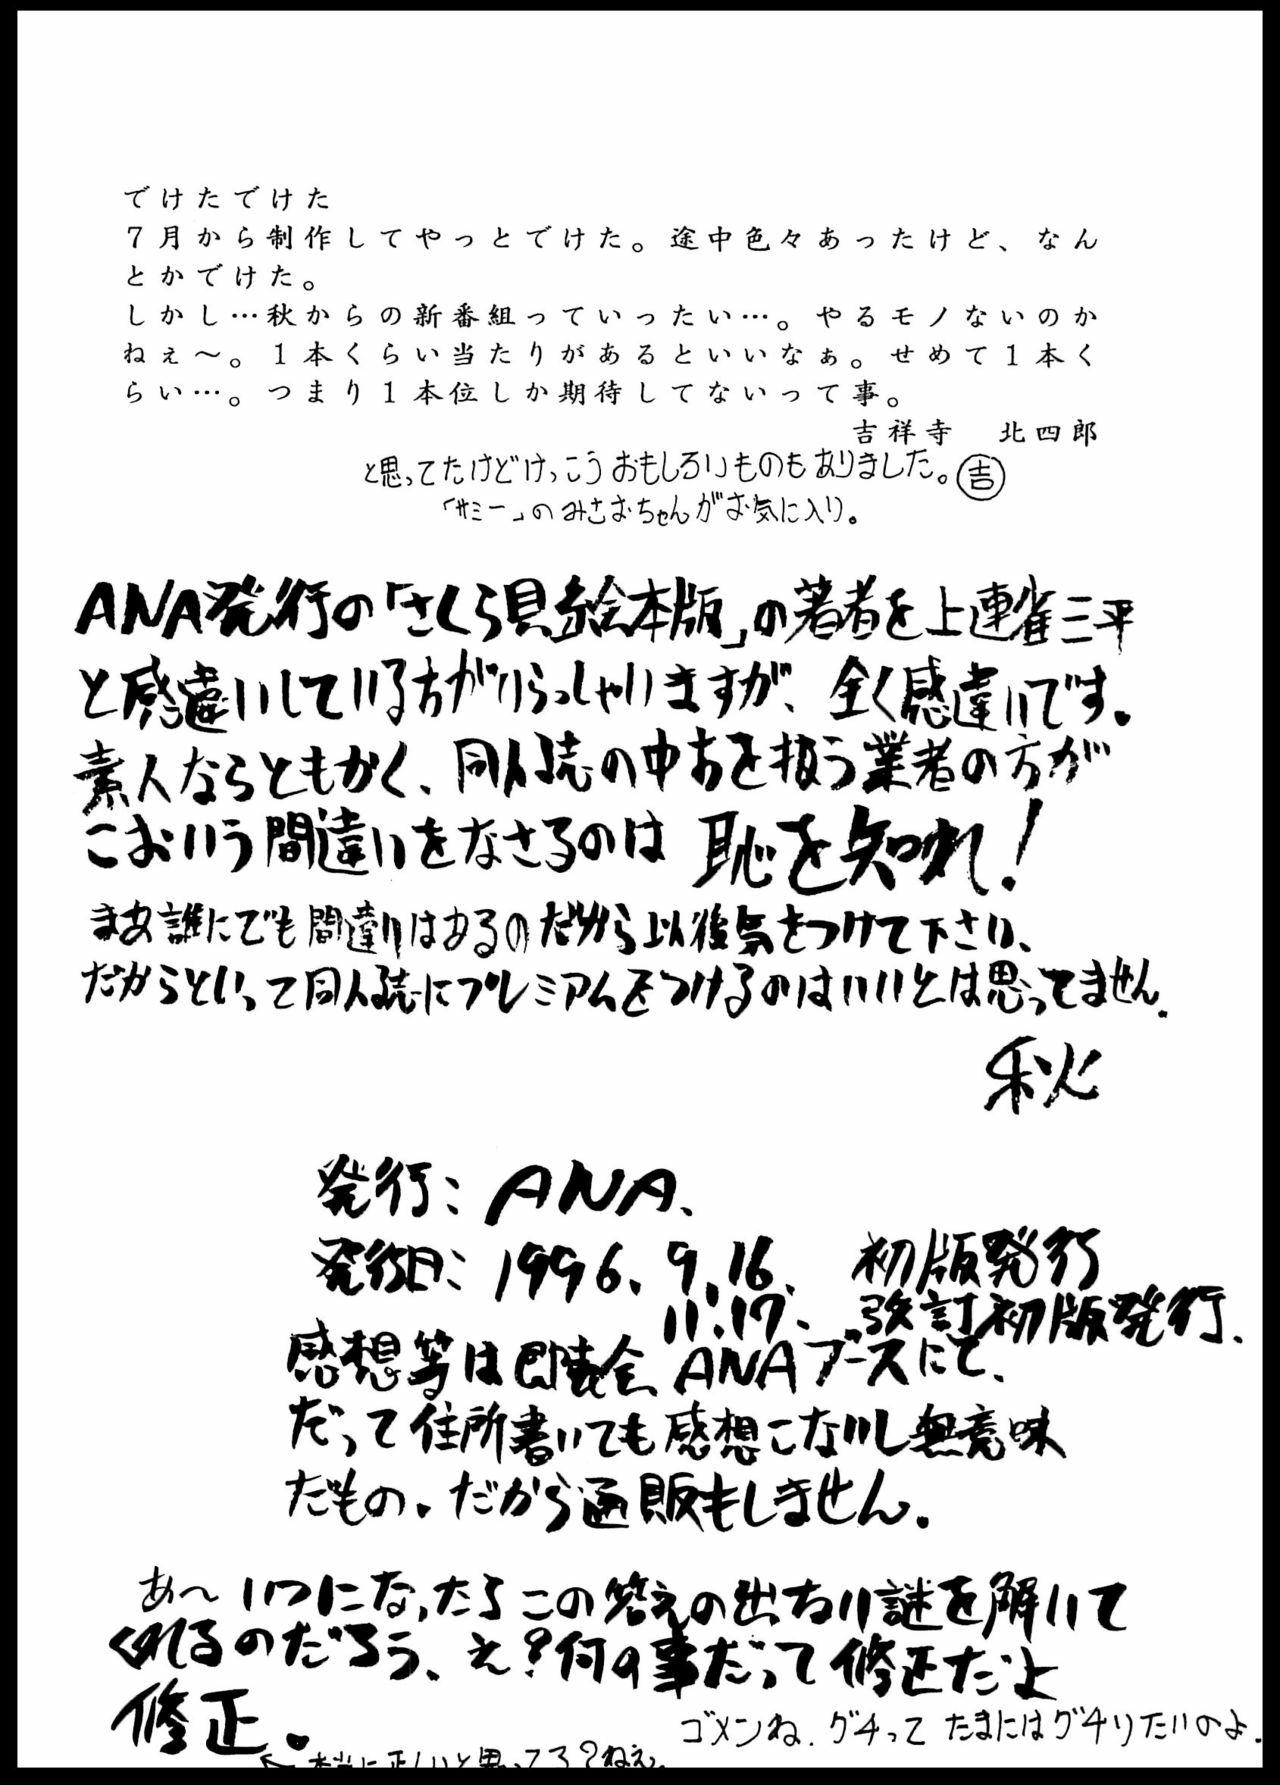 でけたでけた
７月から制作してやっとでけた。途中色々あったけど、なん
とかでけた。
しかし…秋からの新番組っていったい…。やるモノないのか
ねぇ～。１本くらい当たりがあるといいなぁ。せめて１本く
らい…。つまり１本位しか期待してないって事。
吉祥寺　北四郎
と思ってたけどけっこうおもしろいものもありました。㊤
「サミー」のみさおちゃんがお気に入り。
ANA発行の「さくら貝絵本版」の著者を上連雀三平
と感違いしている方がいらっしゃいますが、全く感違いです。
素人ならともかく、同人誌の中古を扱う業者の方が
こおいう間違いをなさるのは恥を知れ！
まあ誰にでも間違いはあるのだから以後気をつけて下さい、
だからといって同人誌にプレミアムをつけるのはいいとは思ってません。
秋
発行：ANA、
発行日：1996.9.16.　初版発行
11.17.　改訂初版発行.
感想等は即売会、ANAブースにて、
だって住所書いても感想こないし無意味
だもの。だから通販もしません。
あ〜いつになったらこの答えの出ない謎を解いて
くれるのだろう、え？何の事だって修正だよ
修正。
ゴメンね。グチって たまにはグチりたいのよ.
←本当に正しいと思ってる？ねえ。